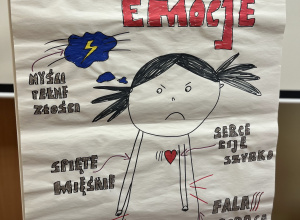 EMOCJE
MYŚLI
PEŁNE
ZŁOŚCI
SERCE
BIJE
SZYBKO
SPIĘTE
MIĘŚNIE
FALA